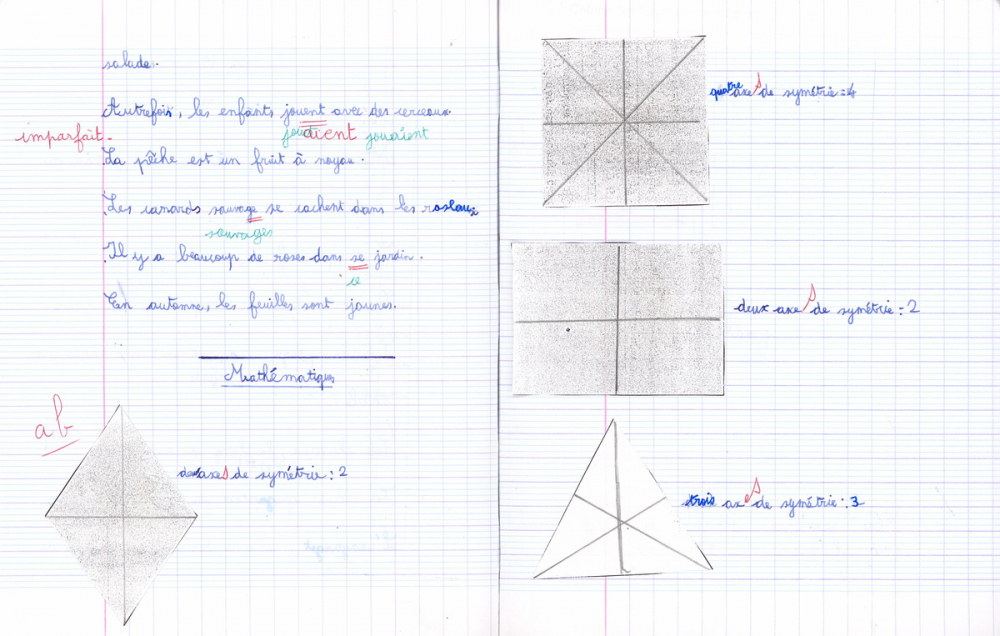 salade.
Autrefois, les enfants jouent avec des cerceaux.
imparfait.
jouaient jouaient
La pêche est un fruit à noyau.
Les canards sauvage se cachent dans les roseaux
sauvages
Il y a beaucoup de roses dans se jardin.
ce
En automne, les feuilles sont jaunes.
Mathématiques
ab
axes de symétrie : 2
quatre axes de symétrie : 4
deux axes de symétrie : 2
trois axes de symétrie : 3